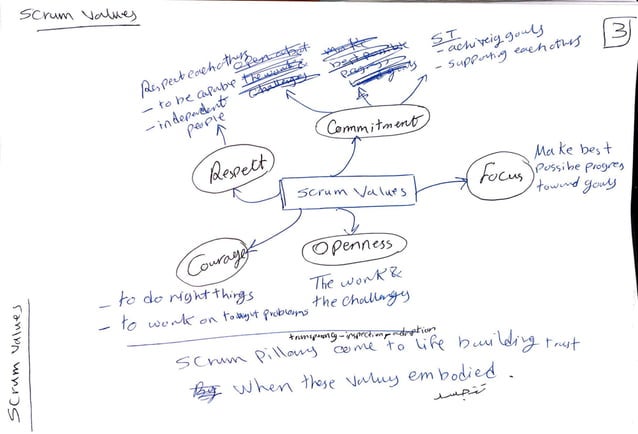 Scrum Values
3
Respect each others
- to be capable
- independent
people
Open about
the work &
challenges
make
best possible
progress
goals
ST
- achieving goals
- supporting each others
Commitment
Respect
Scrum Values
Focus
Make best
possible progres
toward goals
Courage
Openness
The work &
the challenges
- to do right things
- to work on tough problems
transparency - inspection - adaption
Scrum pillars come to life building trust
When these values embodied.
تتجسد
Scrum Values